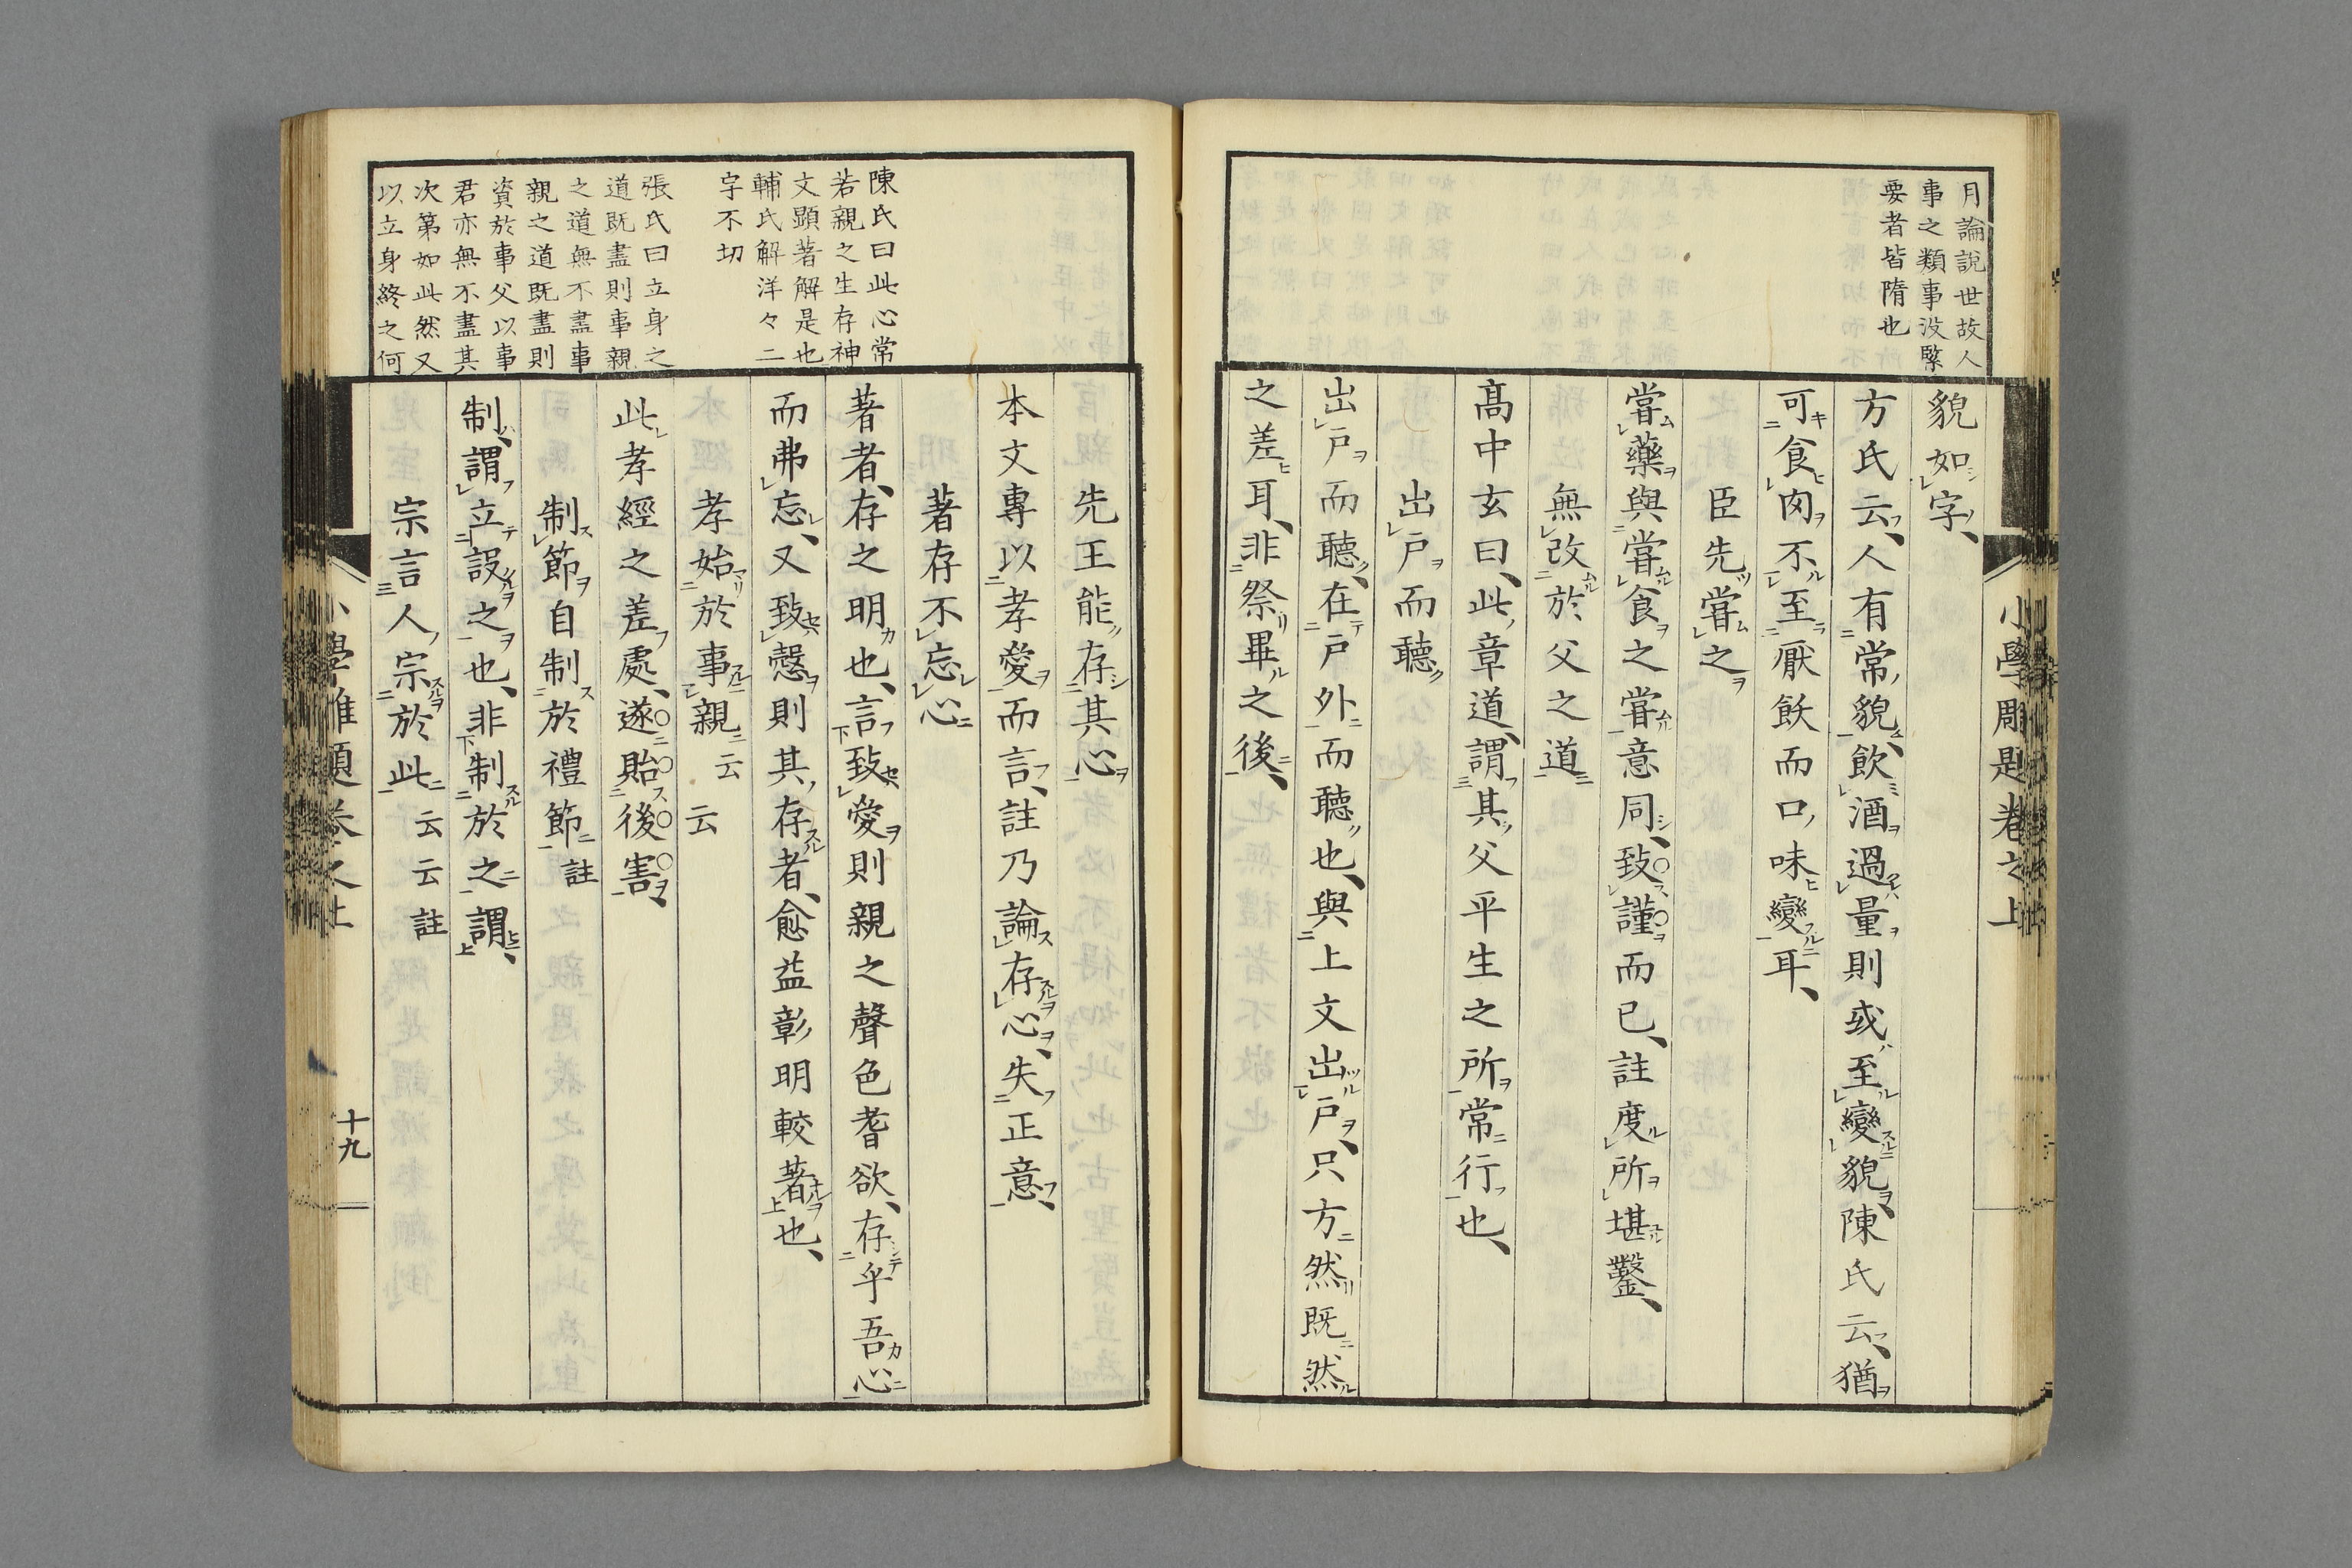 月論說世故人
事之類事沒緊
要者皆隋也
貌如字
方氏云人有常貌飲酒過量則或至變貌陳氏云猶
可食肉不至厭飫而口味變耳
臣先嘗之
嘗藥與嘗食之嘗意同致謹而已註度所堪鑿
無改於父之道
髙中玄曰此章道謂其父平生之所常行也
出戸而聽
出戸而聽在戸外而聽也與上文出戸只方然既然
之差耳非祭畢之後
小學雕題卷之上
陳氏曰此心常
若親之生存神
文顯著解是也
輔氏解洋々二
字不切
張氏曰立身之
道既盡則事親
之道無不盡事
親之道既盡則
資於事父以事
君亦無不盡其
次第如此然又
以立身終之何
先王能存其心
本文專以孝愛而言註乃論存心失正意
著存不忘心
著者存之明也言致愛則親之聲色耆欲存乎吾心
而弗忘又致愨則其存者愈益彰明較著也
孝始於事親云云
此孝經之差處遂貽後害
制節自制於禮節註
制謂立設之也非制於之謂
宗言人宗於此云云註
小學雕題卷之上
十九